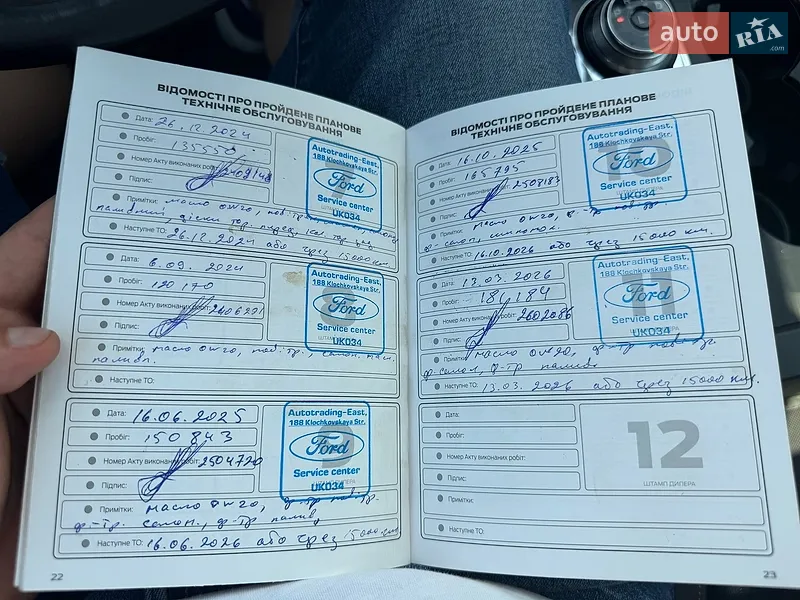 auto RIA .com
ВІДОМОСТІ ПРО ПРОЙДЕНЕ ПЛАНОВЕ
ТЕХНІЧНЕ ОБСЛУГОВУВАННЯ
Дата: 26.12.2024
Пробіг: 135558
Номер Акту виконаних робіт: 2409148
Підпис:
Autotrading-East,
188 Klochkovskaya Str.
Ford
Service center
UK034
Примітки: масло 0w20,
Наступне ТО: 26.12.2024 або чрез 15000 км.
Дата: 6.09.2024
Пробіг: 120170
Номер Акту виконаних робіт: 2406291
Підпис:
Autotrading-East,
188 Klochkovskaya Str.
Ford
Service center
UK034
ШТАМП ДИЛЕРА
Примітки: масло 0w20, пов. тр., салон,
палив.
Наступне ТО:
Дата: 16.06.2025
Пробіг: 150843
Номер Акту виконаних робіт: 2504720
Підпис:
Autotrading-East,
188 Klochkovskaya Str.
Ford
Service center
UK034
Примітки: масло 0w20, ф-тр повітр.
ф-тр. салон., ф-тр палив,
Наступне ТО: 16.06.2026 або чрез 15000 км
22
ВІДОМОСТІ ПРО ПРОЙДЕНЕ ПЛАНОВЕ
ТЕХНІЧНЕ ОБСЛУГОВУВАННЯ
Дата: 16.10.2025
Пробіг: 165795
Номер Акту виконаних робіт: 2508183
Підпис:
Autotrading-East,
188 Klochkovskaya Str.
Ford
Service center
UK034
Примітки: масло 0w20, ф-тр пов-тр,
ф-салон,
Наступне ТО: 16.10.2026 або чрез 15000 км.
Дата: 13.03.2026
Пробіг: 184184
Номер Акту виконаних робіт: 2602086
Підпис:
Autotrading-East,
188 Klochkovskaya Str.
Ford
Service center
UK034
Примітки: масло 0w20, ф-тр
ф-салон, ф-тр палив.
Наступне ТО: 13.03.2026 або чрез 15000 км.
Дата:
Пробіг:
Номер Акту виконаних робіт:
Підпис:
12
ШТАМП ДИЛЕРА
Примітки:
Наступне ТО:
23